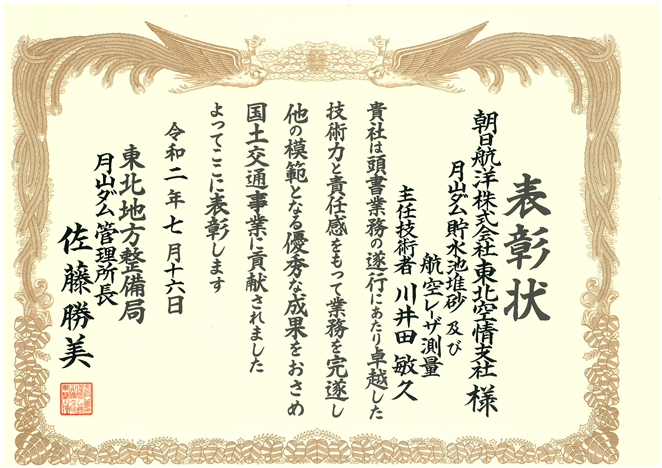 表彰状
朝日航洋株式会社東北空情支社 様
月山ダム貯水池堆砂 及び
航空レーザ測量
主任技術者 川井田 敏久
貴社は頭書業務の遂行にあたり卓越した
技術力と責任感をもって業務を完遂し
他の模範となる優秀な成果をおさめ
国土交通事業に貢献されました
よってここに表彰します
令和二年七月十六日
東北地方整備局
月山ダム管理所長
佐藤勝美